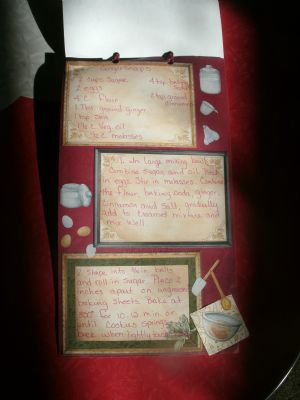 Ginger Snaps
2 cups sugar 4 tsp baking
2 eggs soda
4 C. flour 2 tsp ground
1 Tbs ground ginger cinnamon
1 tsp salt
1 ½ C Veg. oil
½ C molasses
1. In large mixing bowl
Combine sugar and oil, beat
in eggs. Stir in molasses. Combine
the flour, baking soda, ginger
cinnamon and salt, gradually
add to creamed mixture and
mix well.
2 Shape into balls
and roll in sugar. Place 2
inches apart on ungreased
baking sheets. Bake at
350° for 10-12 min. or
until Cookies springs
back when lightly